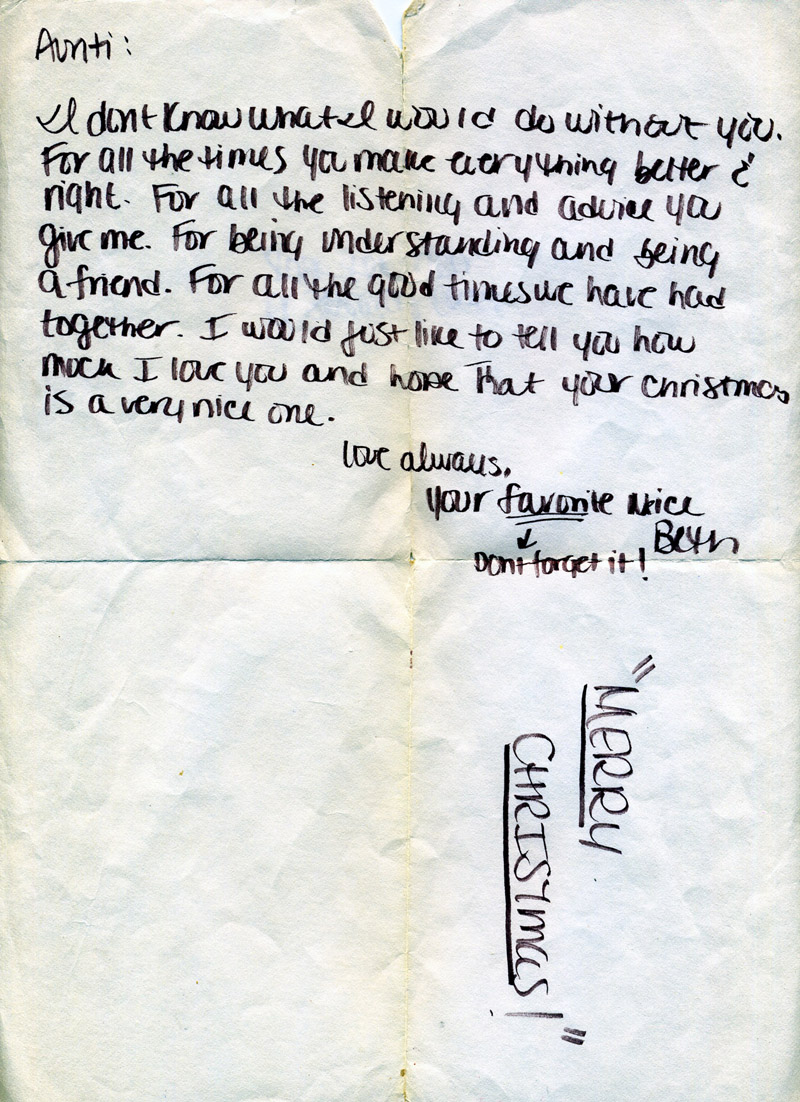 Aunti:
I dont know what I would do without you.
For all the times you make everything better &
right. For all the listening and advice you
give me. For being understanding and being
a friend. For all the good times we have had
together. I would just like to tell you how
much I love you and hope that your christmas
is a very nice one.
love always,
your favorite niece
Beth
Dont forget it!
"MERRY
CHRISTMAS!"